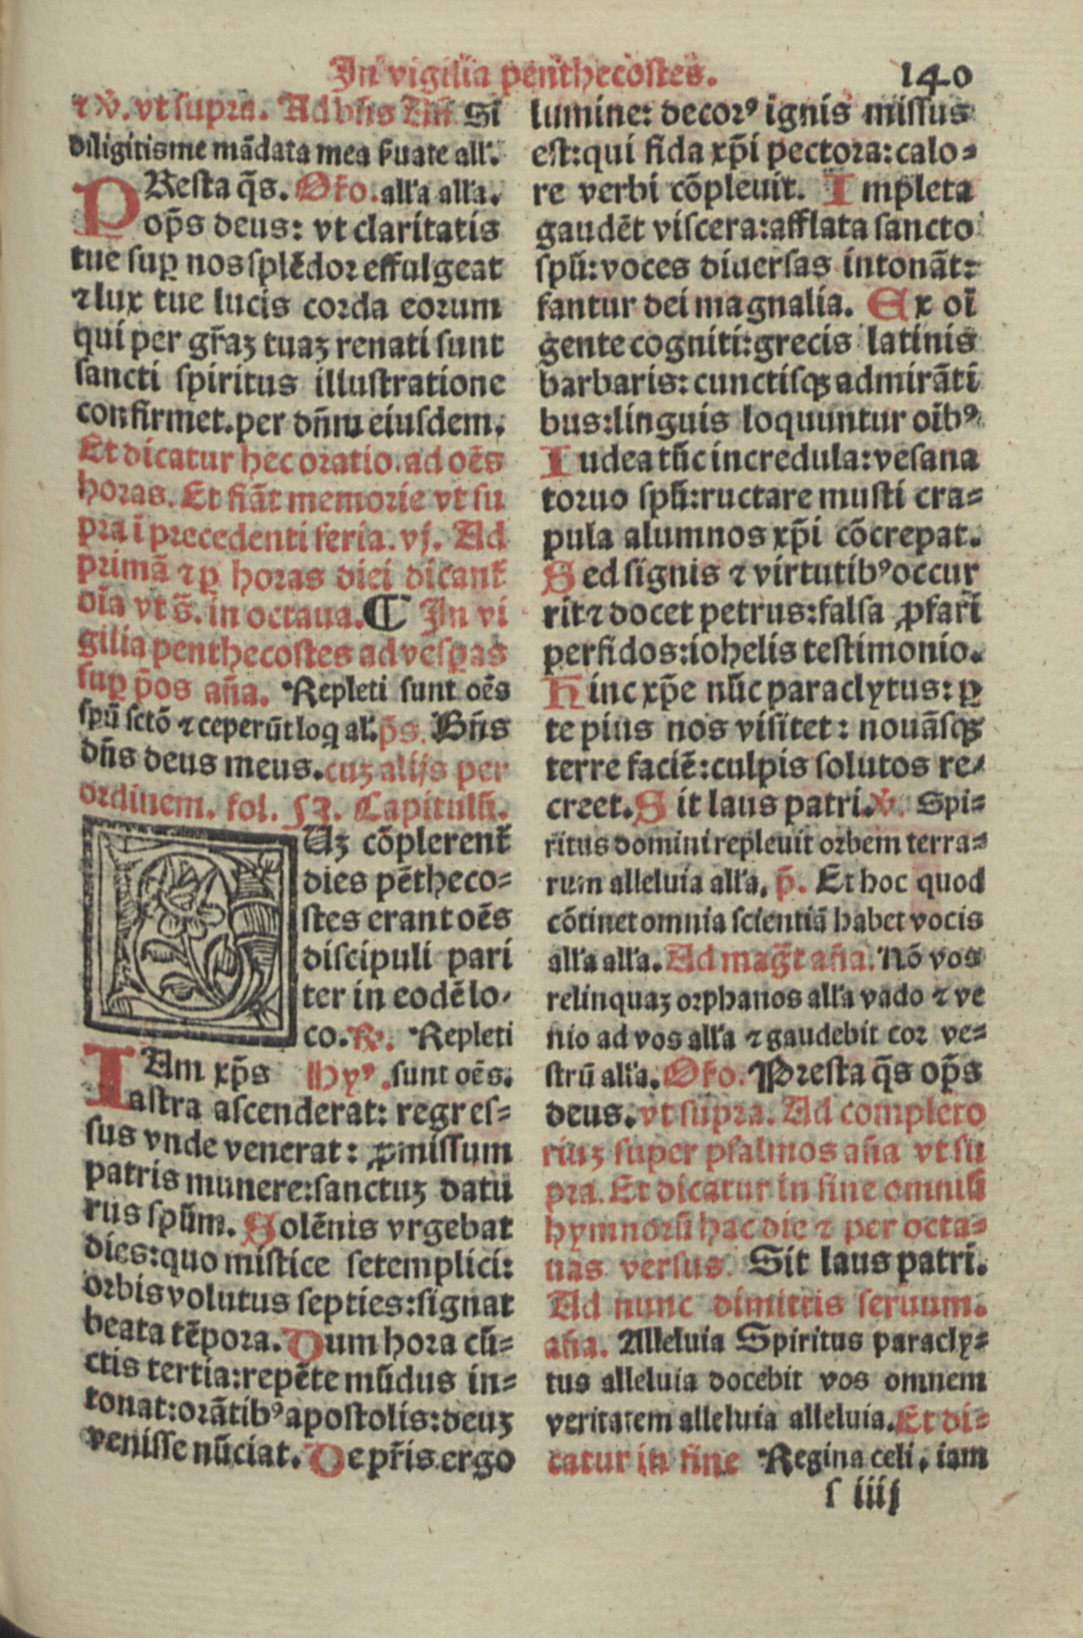 In vigilia penthecostes. 140
⁊ v̇. vt supra. Ad bn̄s An̄. Si
diligitis me mādata mea ẜuate all'.
PResta q̄s. Or̄o. all'a all'a.
op̄s deus: vt claritatis
tue suꝑ nos splēdor effulgeat
⁊ lux tue lucis corda eorum
qui per gr̄aꝫ tuaꝫ renati sunt
sancti spiritus illustratione
confirmet. per dn̄m eiusdem.
Et dicatur hec oratio. ad oēs
horas. Et fiāt memorie vt su
pra ī precedenti feria. vj. Ad
primā ⁊ ꝑ horas diei dicant̄
oīa vt s̄. in octaua. ¶ In vi
gilia penthecostes ad vesꝑas
suꝑ p̄os an̄a. Repleti sunt oēs
spū sctō ⁊ ceperūt loq al'. p̄s. Bn̄s
dn̄s deus meus. cuꝫ alijs per
ordinem. fol. 53. Capitulū.
CUꝫ cōplerent̄
dies pētheco-
stes erant oēs
discipuli pari
ter in eodē lo-
co. ℟. Repleti
IAm xp̄s hyꝰ. sunt oēs.
astra ascenderat: regres-
sus vnde venerat: ꝓmissum
patris munere: sanctuꝫ datu
rus spūm. Solēnis vrgebat
dies: quo mistice setemplici:
orbis volutus septies: signat
beata tēpora. Dum hora cū-
ctis tertia: repēte mūdus in-
tonat: orātibꝰ apostolis: deuꝫ
venisse nūciat. De pr̄is ergo
lumine: decorꝰ ignis missus
est: qui fida xp̄i pectora: calo-
re verbi cōpleuit. Impleta
gaudēt viscera: afflata sancto
spū: voces diuersas intonāt:
fantur dei magnalia. Ex oī
gente cogniti: grecis latinis
barbaris: cunctisqꝫ admirāti
bus: linguis loquuntur oībꝰ.
Iudea tūc incredula: vesana
toruo spū: ructare musti cra-
pula alumnos xp̄i cōcrepat.
Sed signis ⁊ virtutibꝰ occur
rit ⁊ docet petrus: falsa ꝓfari
perfidos: iohelis testimonio.
Hinc xp̄e nūc paraclytus: ꝑ
te pius nos visitet: nouāsqꝫ
terre faciē: culpis solutos re-
creet. Sit laus patri. v̇. Spi-
ritus domini repleuit orbem terra-
rum alleluia all'a. p̄. Et hoc quod
cōtinet omnia scientiā habet vocis
all'a all'a. Ad maḡt an̄a. Nō vos
relinquaꝫ orphanos all'a vado ⁊ ve
nio ad vos all'a ⁊ gaudebit cor ve-
strū all'a. Or̄o. Presta q̄s op̄s
deus. vt supra. Ad completo
riuꝫ super psalmos an̄a vt su
pra. Et dicatur in fine omniū
hymnorū hac die ⁊ per octa-
uas versus. Sit laus patri.
Ad nunc dimittis seruum.
an̄a. Alleluia Spiritus paracly-
tus alleluia docebit vos omnem
veritatem alleluia alleluia. Et di-
catur in fine Regina celi, iam
s iiij